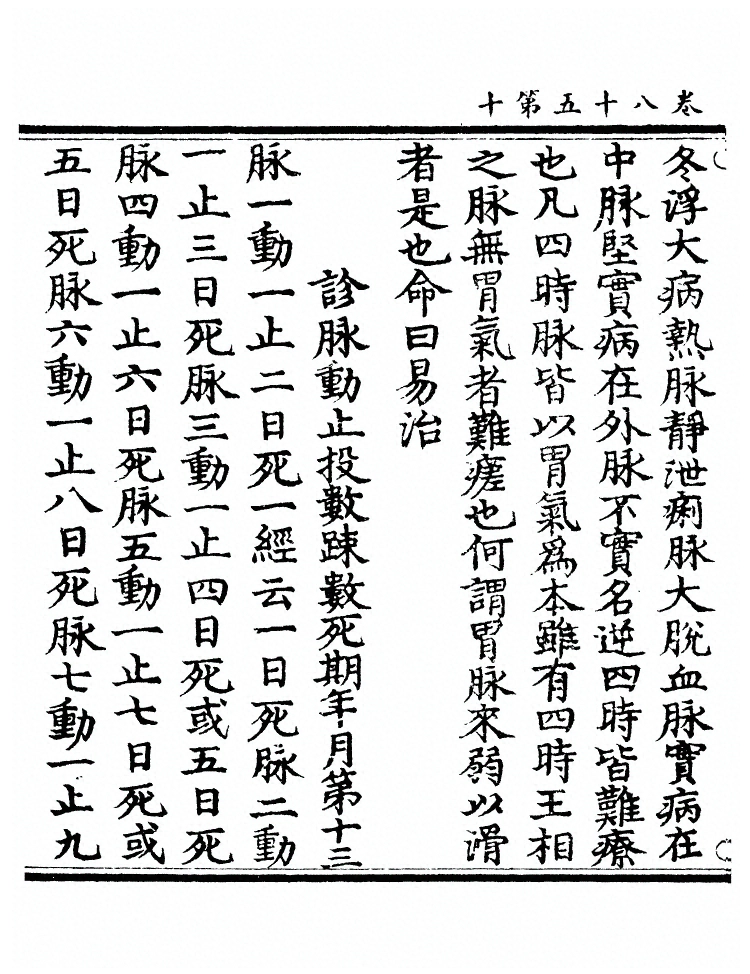 卷八十五第十
冬浮大病熱脉靜泄痢脉大脫血脉實病在
中脉堅實病在外脉不實名逆四時皆難療
也凡四時脉皆以胃氣爲本雖有四時王相
之脉無胃氣者難瘥也何謂胃脉來弱以滑
者是也命曰易治
診脉動止投數踈數死期年月第十三
脉一動一止二日死一經云一日死脉二動
一止三日死脉三動一止四日死或五日死
脉四動一止六日死脉五動一止七日死或
五日死脉六動一止八日死脉七動一止九